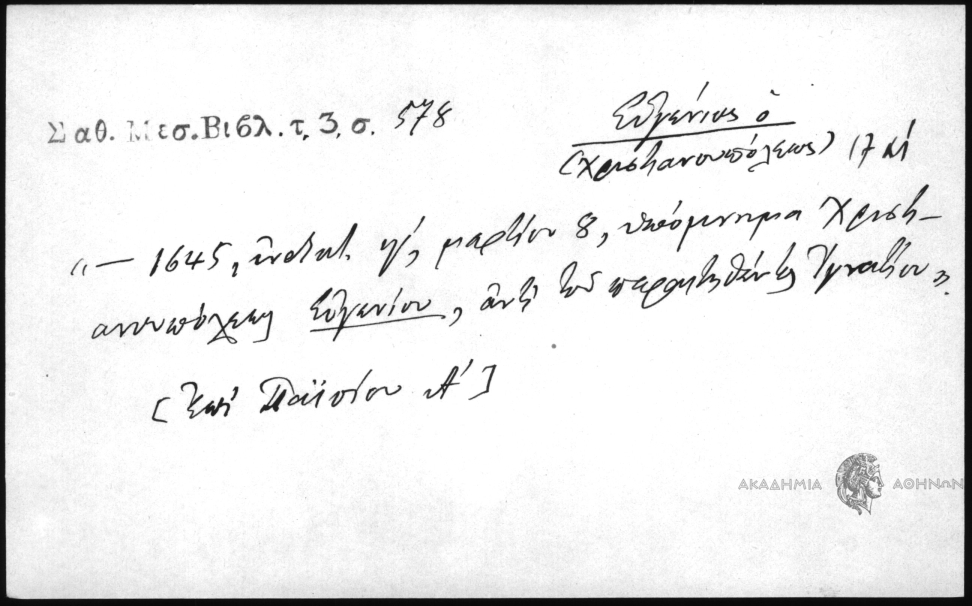 Σαθ. Μεσ. Βιβλ. τ. 3, σ. 578
Εὐγένιος ὁ
(Χριστιανουπόλεως) 17 αἰ
«— 1645, ἰνδικτ. ιγ΄, μαρτίου 8, ὑπόμνημα Χριστι-
ανουπόλεως Εὐγενίου, ἀντὶ τοῦ παραιτηθέντος Ἰγνατίου».
[Ἐπὶ Παϊσίου Α΄]
ΑΚΑΔΗΜΙΑ ΑΘΗΝΩΝ